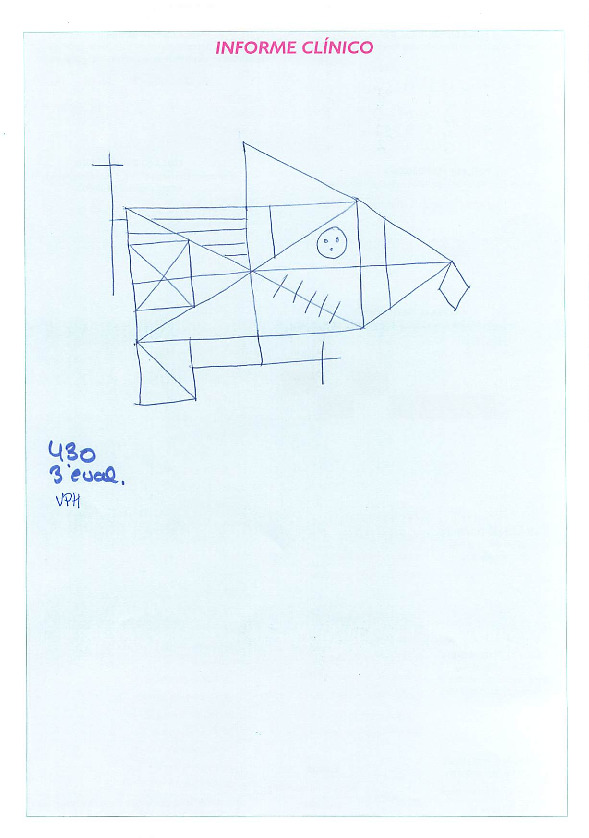 INFORME CLÍNICO
430
3ª eval.
VPH